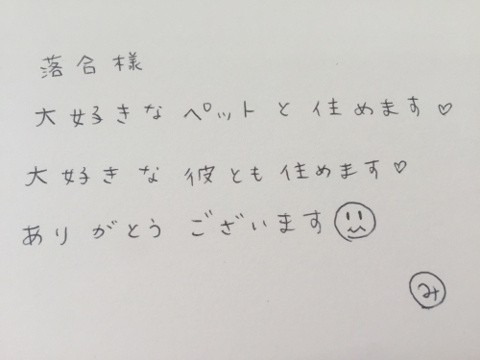 落合様
大好きな ペットと 住めます♡
大好きな 彼とも 住めます♡
ありがとう ございます
み